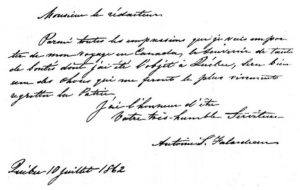 Monsieur le rédacteur.
Parmi toutes les impressions que je vais empor-
ter de mon voyage en Canada, le souvenir de tant
de bontés dont j'ai été l'objet à Québec, sera bien
une des choses qui me feront le plus vivement
regretter la Patrie,
J'ai l'honneur d'être
Votre très-humble Serviteur
Antoine S. Falardeau
Québec 10 juillet 1862